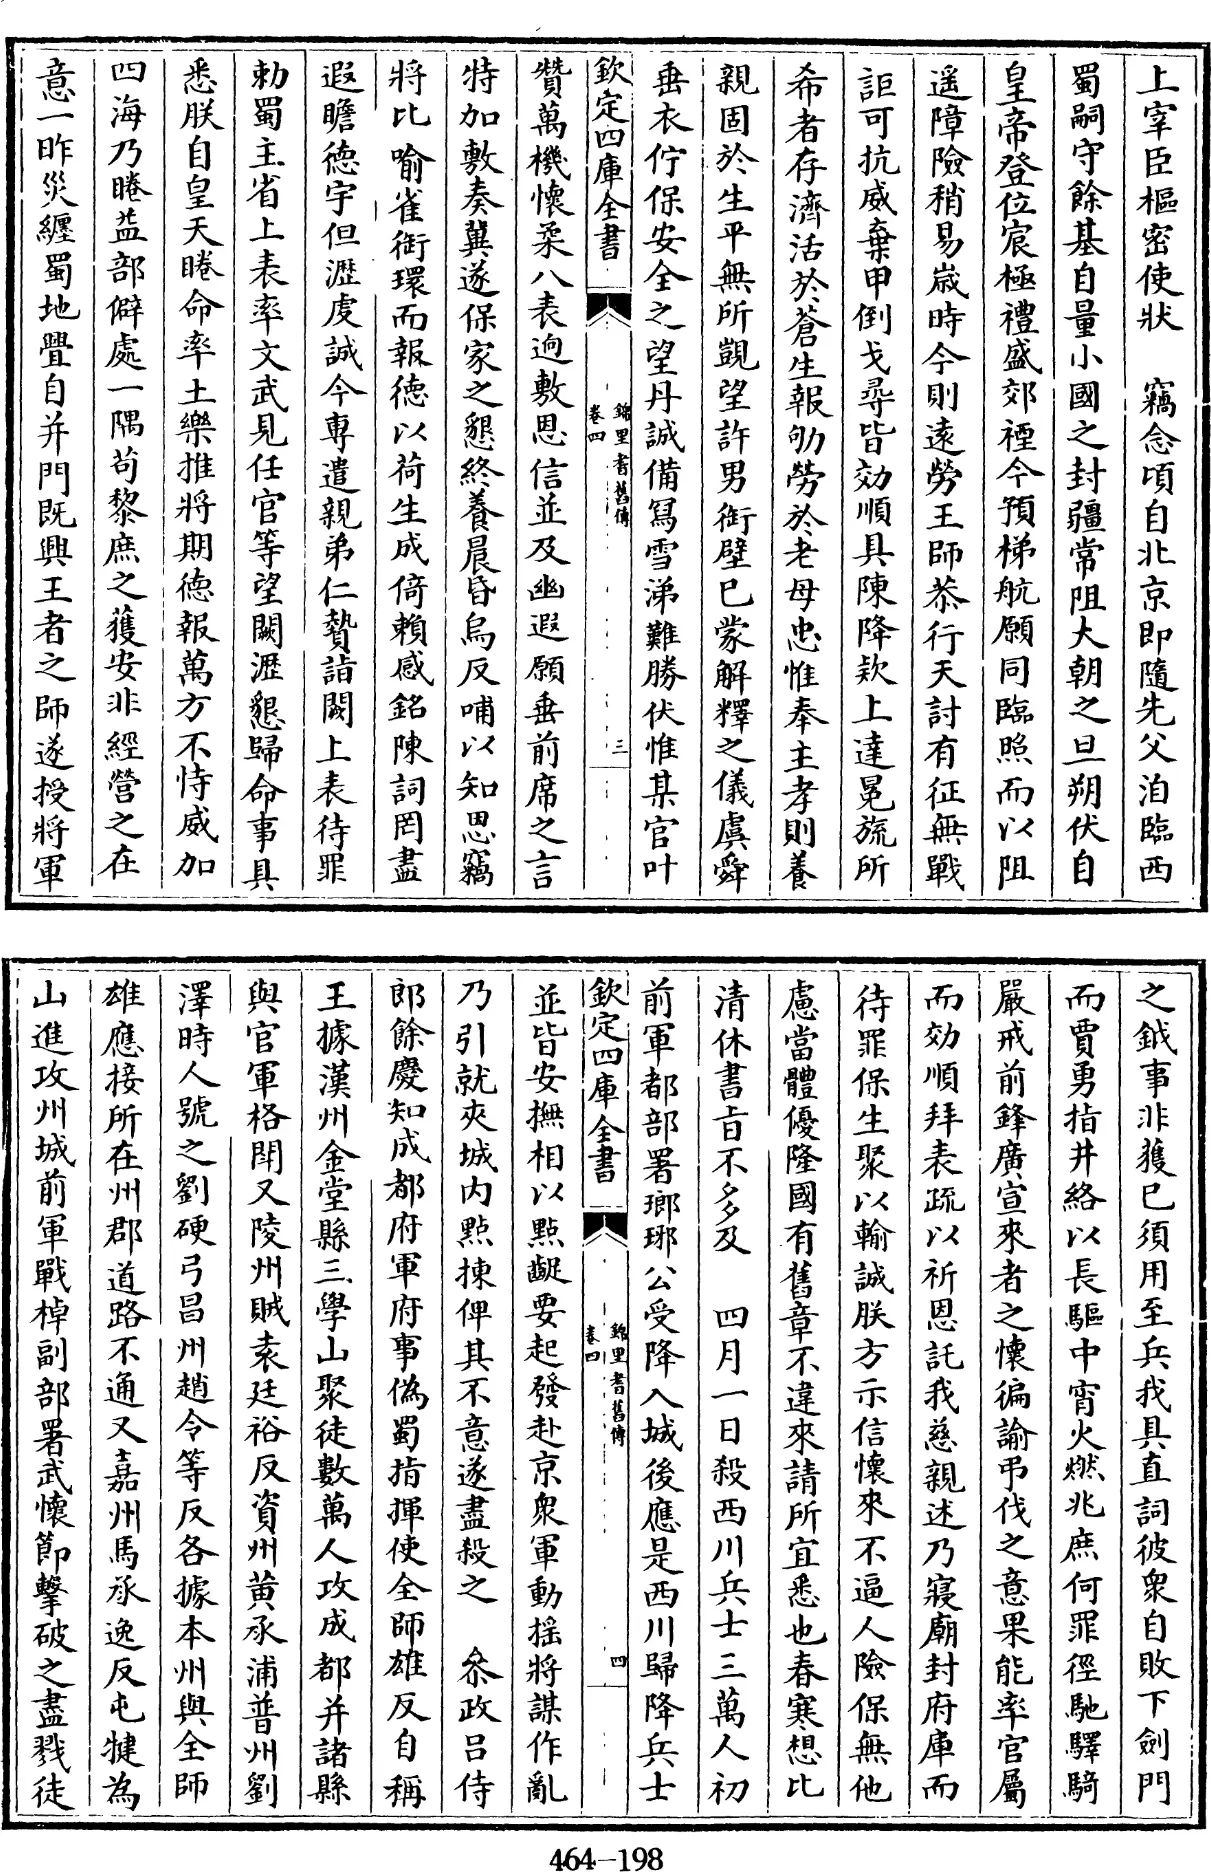 上宰臣樞密使狀　竊念頃自北京即隨先父洎臨西
蜀嗣守餘基自量小國之封疆常阻大朝之旦朔伏自
皇帝登位宸極禮盛郊禋今預梯航願同臨照而以阻
遥障險稍易歳時今則遠勞王師恭行天討有征無戰
詎可抗威棄甲倒戈尋皆効順具陳降欵上達冕旒所
希者存濟活於蒼生報劬勞於老母忠惟奉主孝則養
親固於生平無所覬望許男銜璧已蒙解釋之儀虞舜
垂衣佇保安全之望丹誠備寫雪涕難勝伏惟某官叶
欽定四庫全書　錦里耆舊傳　卷四　三
贊萬機懷柔八表逈敷恩信並及幽遐願垂前席之言
特加敷奏冀遂保家之懇終養晨昏烏反哺以知恩竊
將比喻雀銜環而報德以荷生成倚賴感銘陳詞罔盡
遐瞻德宇但瀝虔誠今專遣親弟仁贄詣闕上表待罪
勅蜀主省上表率文武見任官等望闕瀝懇歸命事具
悉朕自皇天睠命率土樂推將期德報萬方不恃威加
四海乃睠益部僻處一隅苟黎庶之獲安非經營之在
意一昨災纏蜀地釁自并門既興王者之師遂授將軍
之鉞事非獲已須用至兵我具直詞彼衆自敗下劍門
而賈勇指井絡以長驅中宵火燃兆庶何罪徑馳驛騎
嚴戒前鋒廣宣來者之懷徧諭弔伐之意果能率官屬
而効順拜表疏以祈恩託我慈親述乃寢廟封府庫而
待罪保生聚以輸誠朕方示信懷來不逼人險保無他
慮當體優隆國有舊章不違來請所宜悉也春寒想比
清休書㫖不多及　四月一日殺西川兵士三萬人初
前軍都部署瑯琊公受降入城後應是西川歸降兵士
欽定四庫全書　錦里耆舊傳　卷四　四
並皆安撫相以點齪要起發赴京衆軍動揺將謀作亂
乃引就夾城内點揀俾其不意遂盡殺之　叅政吕侍
郎餘慶知成都府軍府事偽蜀指揮使全師雄反自稱
王據漢州金堂縣三學山聚徒數萬人攻成都并諸縣
與官軍格鬬又陵州賊袁廷裕反資州黄承浦普州劉
澤時人號之劉硬弓昌州趙令等反各據本州與全師
雄應接所在州郡道路不通又嘉州馬承逸反屯犍為
山進攻州城前軍戰棹副部署武懷節擊破之盡戮徒
464-198